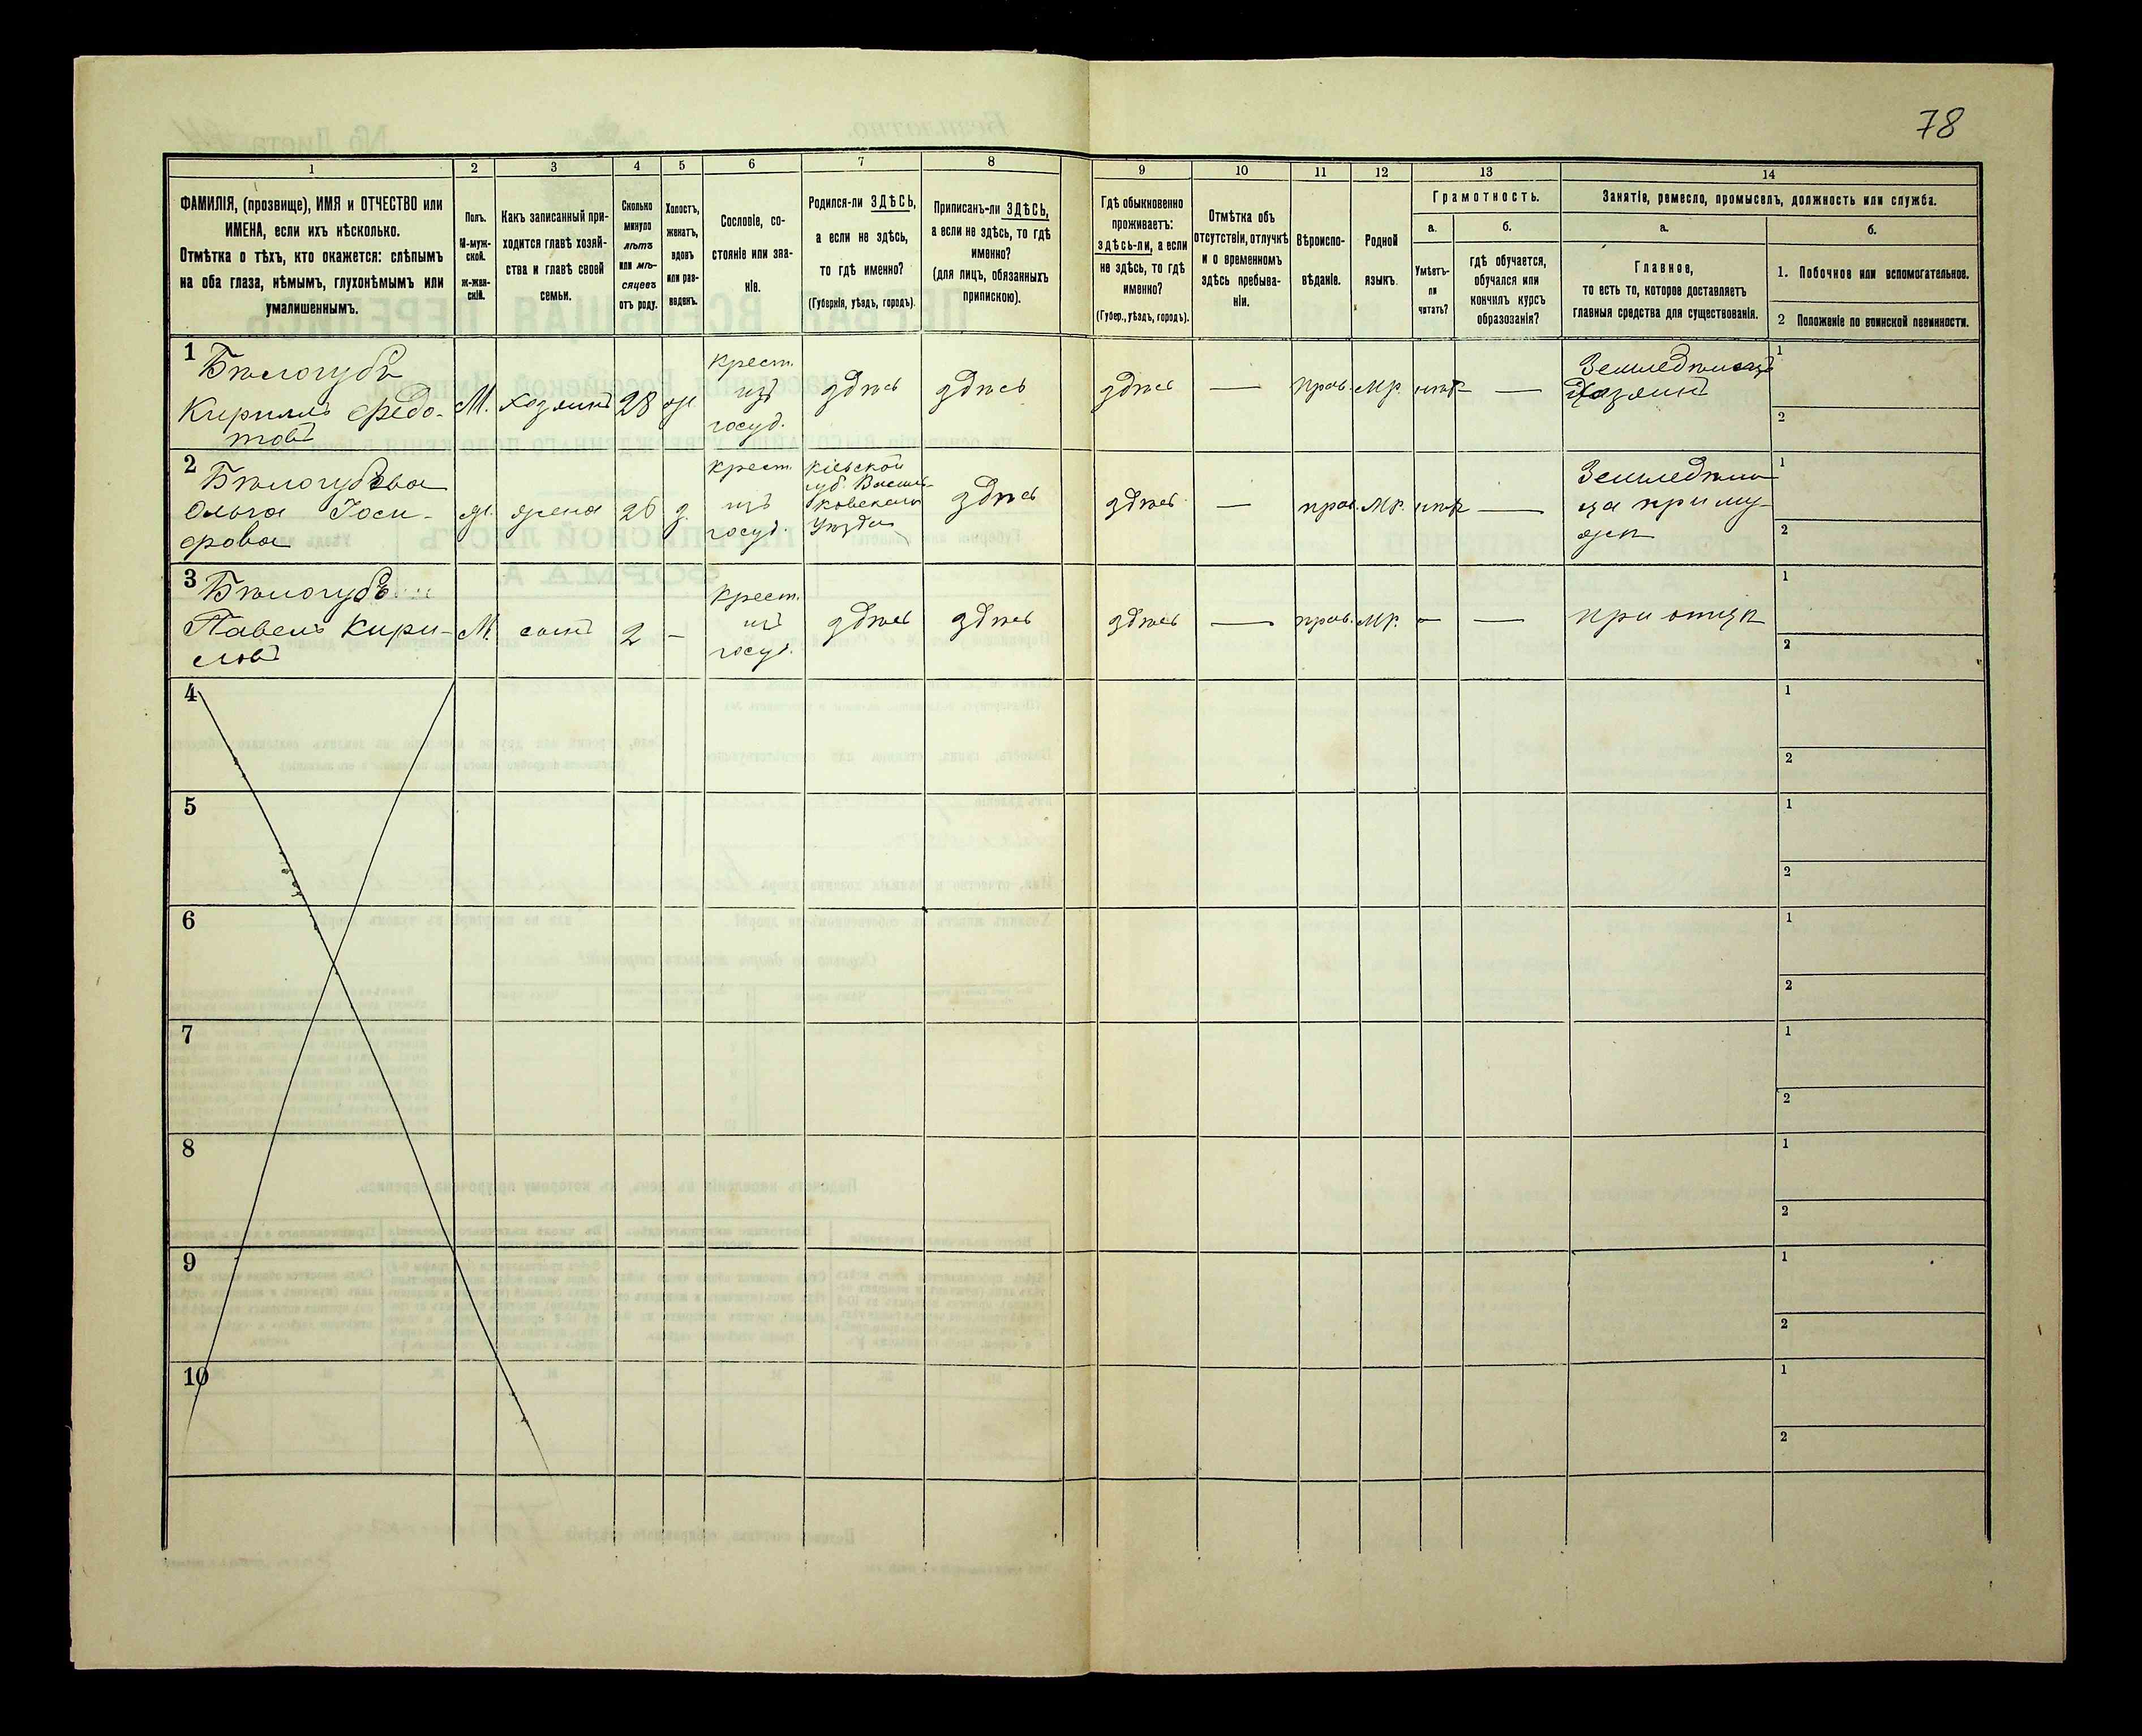 78
1 2 3 4 5 6 7 8 9 10 11 12 13 14
ФАМИЛІЯ, (прозвище), ИМЯ и ОТЧЕСТВО или
ИМЕНА, если ихъ нѣсколько.
Отмѣтка о тѣхъ, кто окажется: слѣпымъ
на оба глаза, нѣмымъ, глухонѣмымъ или
умалишеннымъ.
Полъ.
М-муж-
ской.
ж-жен-
скій.
Какъ записанный при-
ходится главѣ хозяй-
ства и главѣ своей
семьи.
Сколько
минуло
лѣтъ
или мѣ-
сяцевъ
отъ роду.
Холостъ,
женатъ,
вдовъ
или раз-
веденъ.
Сословіе, со-
стояніе или зва-
ніе.
Родился-ли ЗДѢСЬ,
а если не здѣсь,
то гдѣ именно?
(Губернія, уѣздъ, городъ).
Приписанъ-ли ЗДѢСЬ,
а если не здѣсь, то гдѣ
именно?
(для лицъ, обязанныхъ
припискою).
Гдѣ обыкновенно
проживаетъ:
здѣсь-ли, а если
не здѣсь, то гдѣ
именно?
(Губер., уѣздъ, городъ).
Отмѣтка объ
отсутствіи, отлучкѣ
и о временномъ
здѣсь пребыва-
ніи.
Вѣроиспо-
вѣданіе.
Родной
языкъ.
Грамотность.
а.
Умѣетъ-
ли
читать?
б.
гдѣ обучается,
обучался или
кончилъ курсъ
образозанія?
Занятіе, ремесло, промыселъ, должность или служба.
а.
Главное,
то есть то, которое доставляетъ
главныя средства для существованія.
б.
1. Побочное или вспомогательное.
2 Положеніе по воинской повинности.
1
Бѣлогубъ
Кириллъ Федо-
товъ
М.
хозяинъ
28
ж.
крест.
изъ
госуд.
здѣсь
здѣсь
здѣсь
—
прав.
мр.
нѣтъ
—
Земледѣлецъ
Хозяинъ
1
2
2
Бѣлогубова
Ольга Іоси-
фова
ж.
жена
26
з.
крест.
изъ
госуд.
Кіевской
губ. Василь-
ковскаго
уѣзда
здѣсь
здѣсь
—
прав.
мр.
нѣтъ
—
Земледѣли-
ца при му-
жѣ
1
2
3
Бѣлогубъ
Павелъ Кири-
ловъ
М.
сынъ
2
—
крест.
изъ
госуд.
здѣсь
здѣсь
здѣсь
—
прав.
мр.
—
—
при отцѣ
1
2
4
1
2
5
1
2
6
1
2
7
1
2
8
1
2
9
1
2
10
1
2